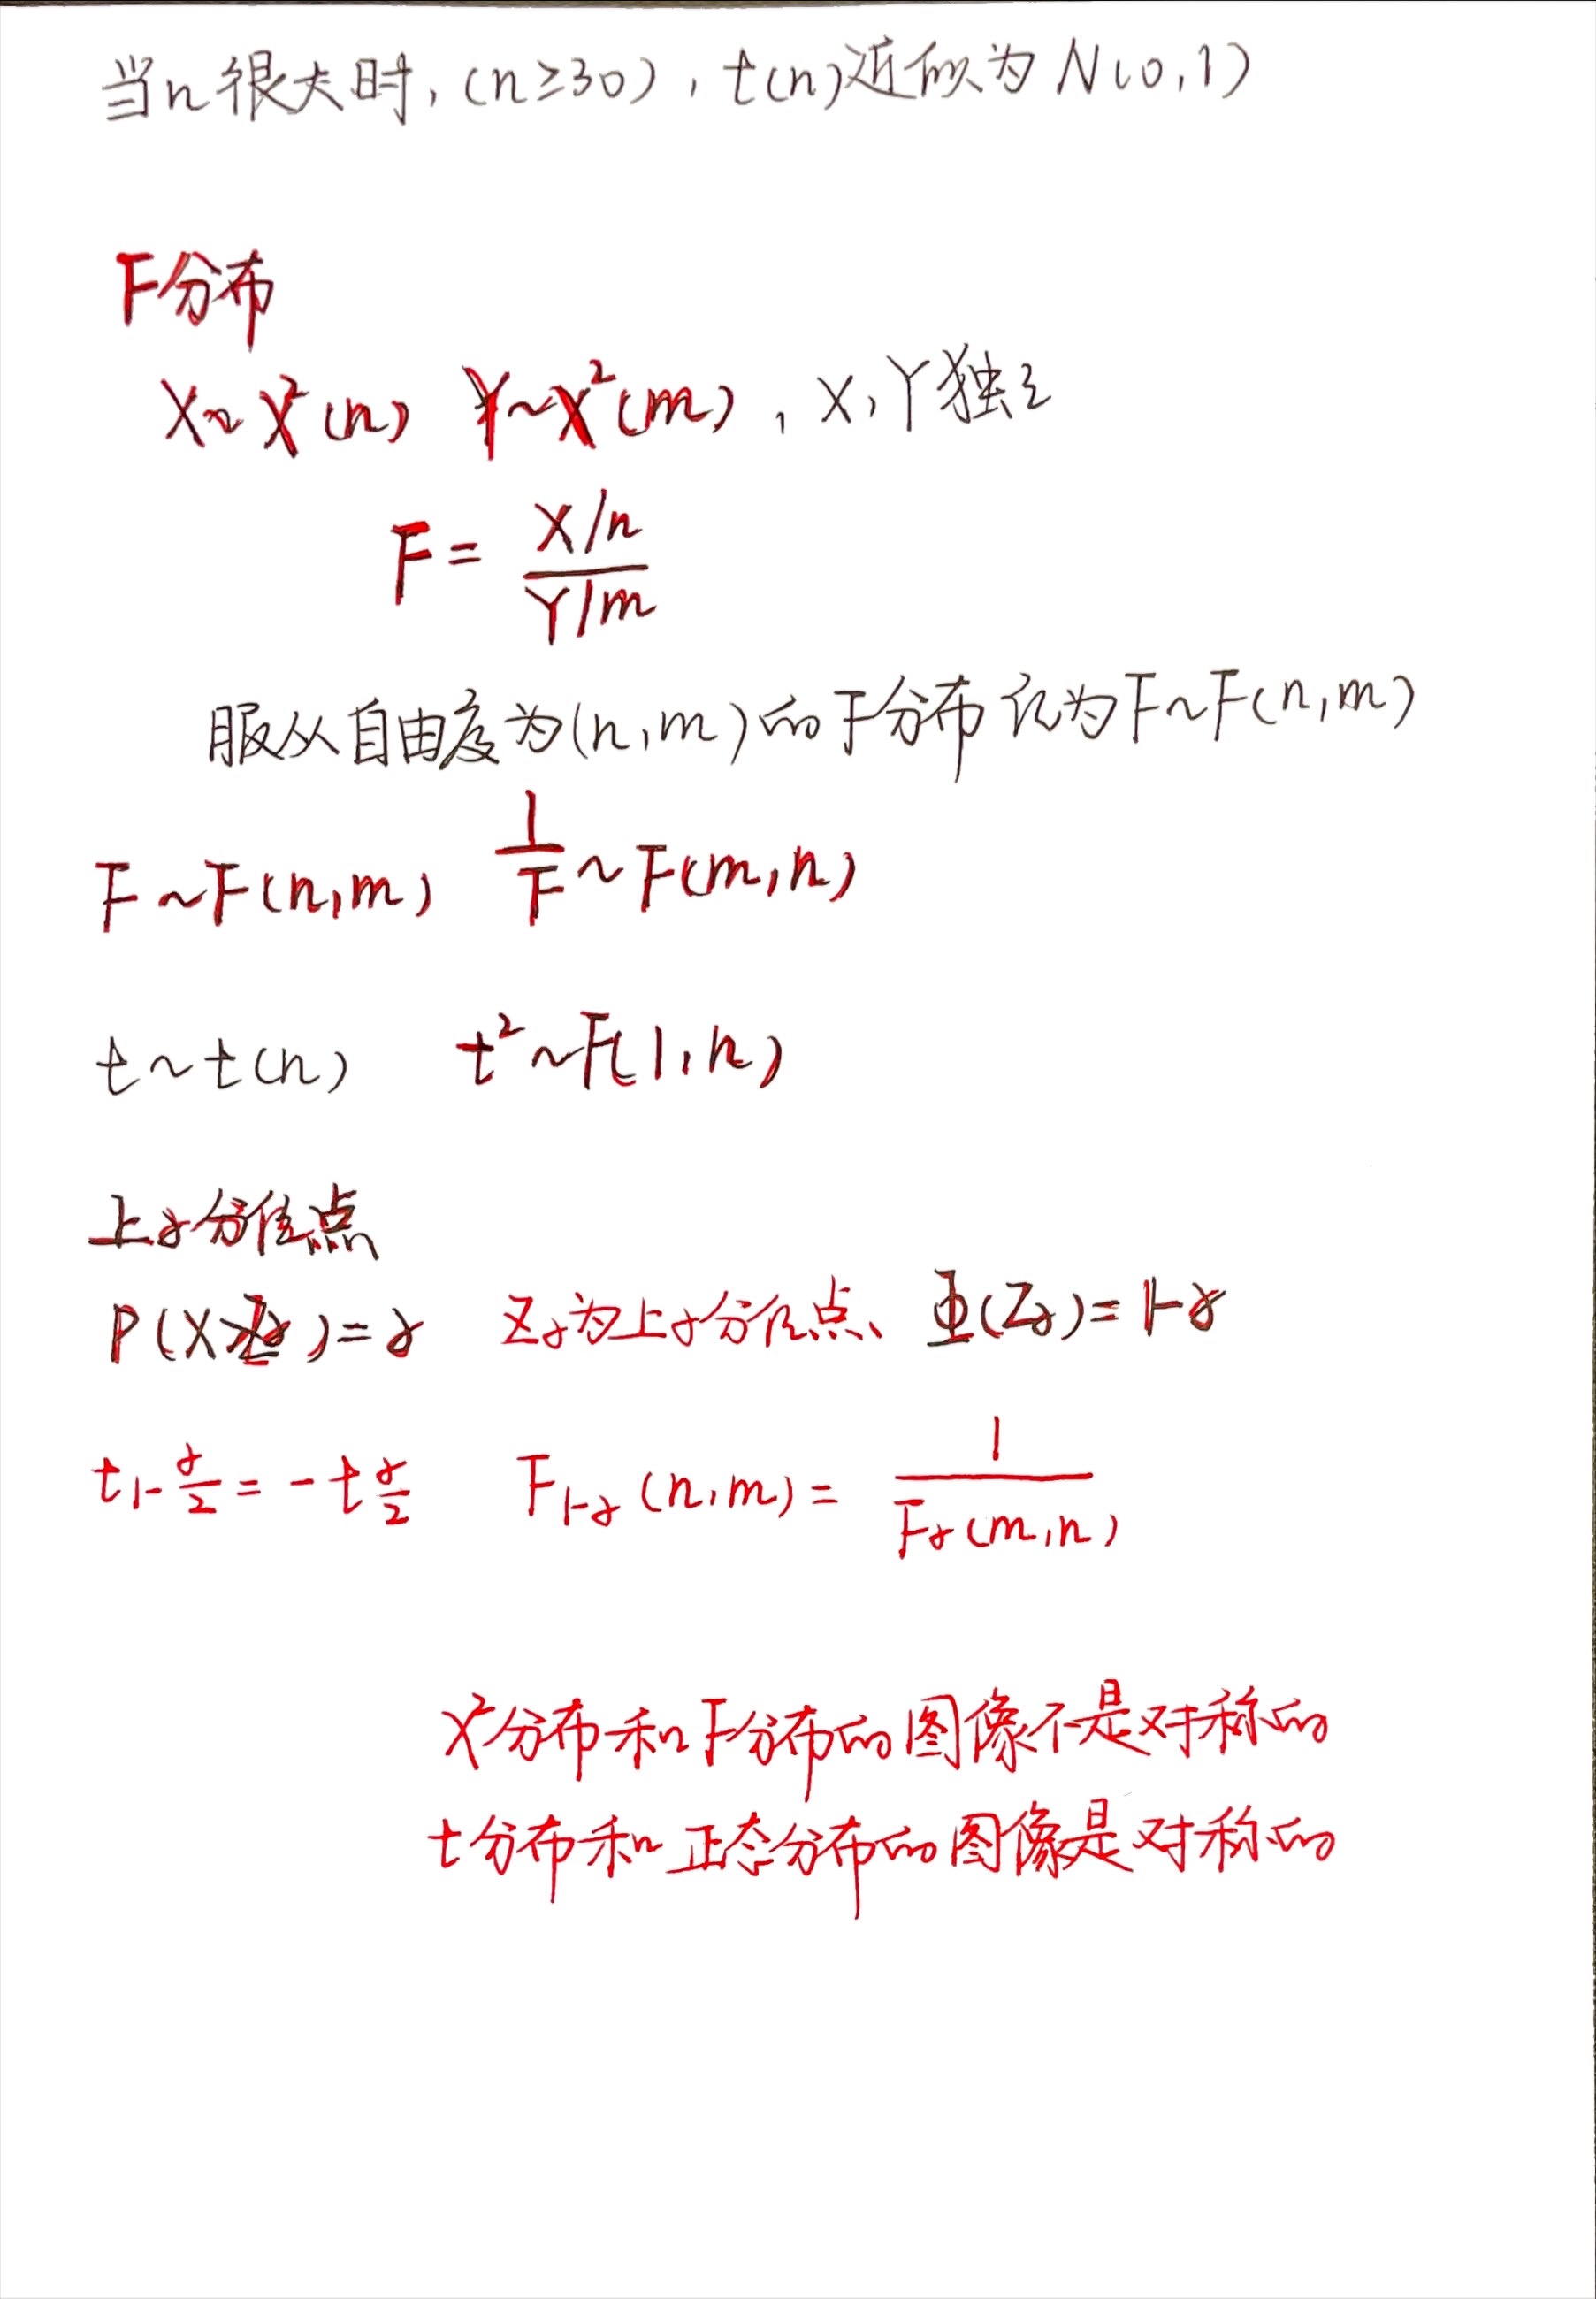 当n很大时,(n≥30),t(n)近似为N(0,1)
F分布
X~χ²(n) Y~χ²(m),X,Y独立
F= (X/n)/(Y/m)
服从自由度为(n,m)的F分布 记为F~F(n,m)
F~F(n,m) 1/F~F(m,n)
t~t(n) t²~F(1,n)
上α分位点
P(X>Zα)=α Zα为上α分位点、Φ(Zα)=1-α
t1-α/2=-tα/2 F1-α(n,m)= 1/Fα(m,n)
χ²分布和F分布的图像不是对称的
t分布和正态分布的图像是对称的